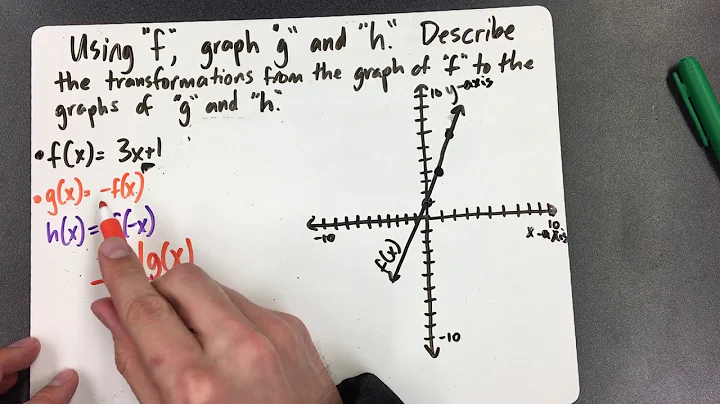 Using "f", graph "g" and "h." Describe
the transformations from the graph of "f" to the
graphs of "g" and "h."
• f(x) = 3x+1
• g(x) = -f(x)
h(x) = f(-x)
g(x)
10 y-axis
-10
10
x-axis
f(x)
-10